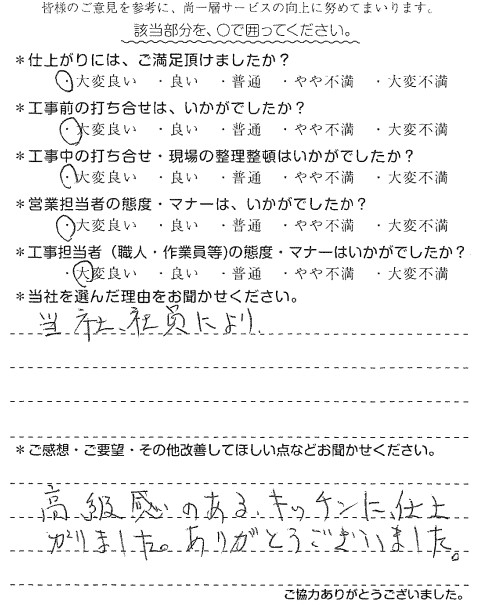 皆様のご意見を参考に、尚一層サービスの向上に努めてまいります。
該当部分を、○で囲ってください。
＊仕上がりには、ご満足頂けましたか？
・大変良い ・良い ・普通 ・やや不満 ・大変不満
＊工事前の打ち合せは、いかがでしたか？
・大変良い ・良い ・普通 ・やや不満 ・大変不満
＊工事中の打ち合せ・現場の整理整頓はいかがでしたか？
・大変良い ・良い ・普通 ・やや不満 ・大変不満
＊営業担当者の態度・マナーは、いかがでしたか？
・大変良い ・良い ・普通 ・やや不満 ・大変不満
＊工事担当者（職人・作業員等)の態度・マナーはいかがでしたか？
・大変良い ・良い ・普通 ・やや不満 ・大変不満
＊当社を選んだ理由をお聞かせください。
当社、社員により、
＊ご感想・ご要望・その他改善してほしい点などお聞かせください。
高級感のある、キッチンに、仕上
がりました。ありがとうございました。
ご協力ありがとうございました。